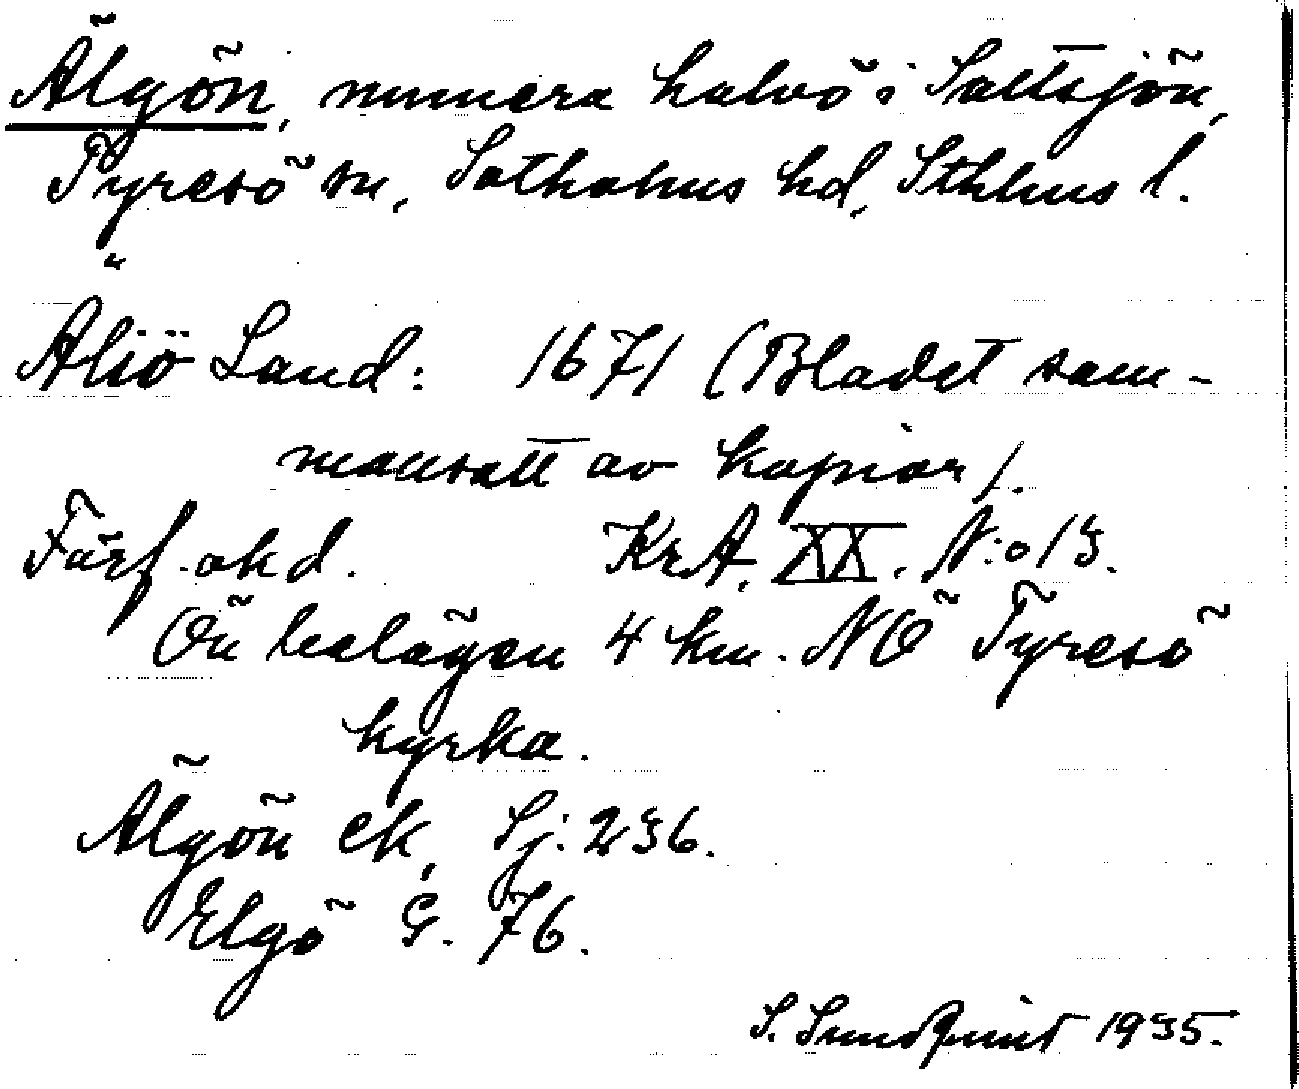 Älgön, numera halvö i Saltsjön,
Tyresö sn, Sotholms hd, Sthlms l.
Äliö Land: 1671 (Bladet sam-
mansatt av kopior).
Förf. okd. KrA. XX. N:o 13.
Ön belägen 4 km. NÖ Tyresö
kyrka.
Älgön ek, Sj: 236.
Elgö G. 76.
S. Sundquist 1935.